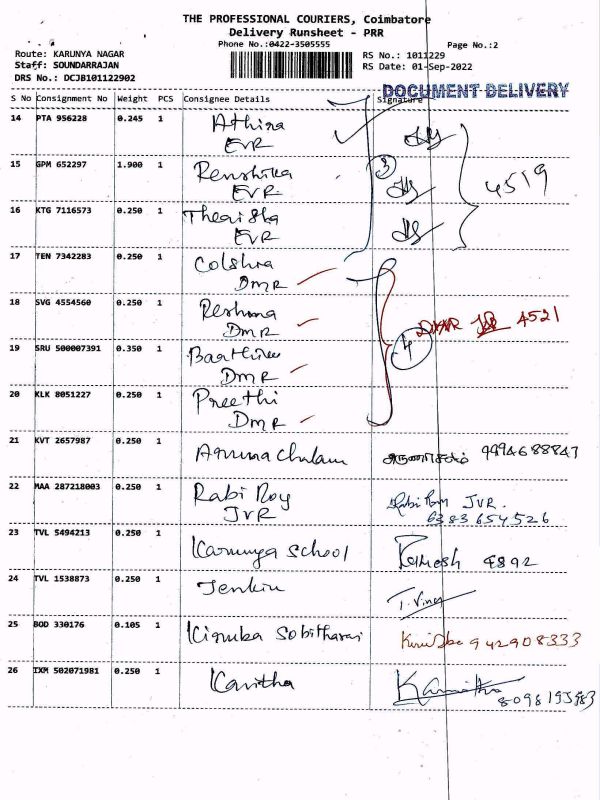 THE PROFESSIONAL COURIERS, Coimbatore
Delivery Runsheet - PRR
Phone No.:0422-3505555
Page No.:2
Route: KARUNYA NAGAR
Staff: SOUNDARRAJAN
DRS No.: DCJB101122902
RS No.: 1011229
RS Date: 01-Sep-2022
DOCUMENT DELIVERY
S No Consignment No Weight PCS Consignee Details Signature
14 PTA 956228 0.245 1 Athira
EVR
15 GPM 652297 1.900 1 Renshika
EVR
3
4519
16 KTG 7116573 0.250 1
EVR
17 TEN 7342283 0.250 1
DMR
18 SVG 4554560 0.250 1 Reshma
DMR
4521
19 SRU 500007391 0.350 1
DMR
4
20 KLK 8051227 0.250 1 Preethi
DMR
21 KVT 2657987 0.250 1 Arunachalam அருணாசலம் 9994688847
22 MAA 287218003 0.250 1 Rabi Roy Rabi Roy JVR.
JVR 6383654526
23 TVL 5494213 0.250 1 Karunya School Ramesh 9892
24 TVL 1538873 0.250 1 Jenkin
25 BOD 330176 0.105 1 942908333
26 IXM 502071981 0.250 1 Kavitha
8098195983